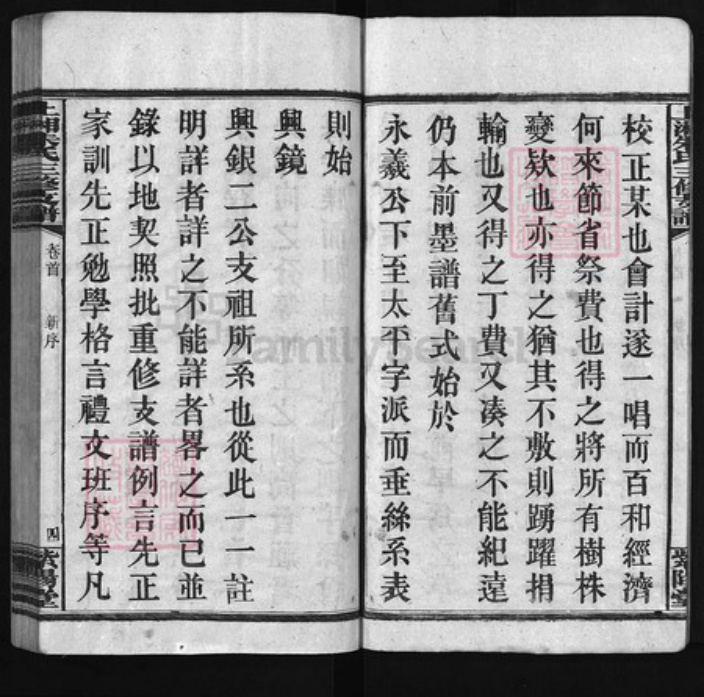 校正某也會計遂一唱而百和經濟
何來節省祭費也得之將所有樹株
變欵也亦得之猶其不敷則踴躍捐
輸也又得之丁費又湊之不能紀遠
仍本前墨譜舊式始於
永義公下至太平字派而垂絲系表
則始
興鏡
興銀二公支祖所系也從此一一註
明詳者詳之不能詳者畧之而已並
錄以地契照批重修支譜例言先正
家訓先正勉學格言禮文班序等凡
氏三修支譜
卷首
新序
四
紫陽堂
FamilySearch